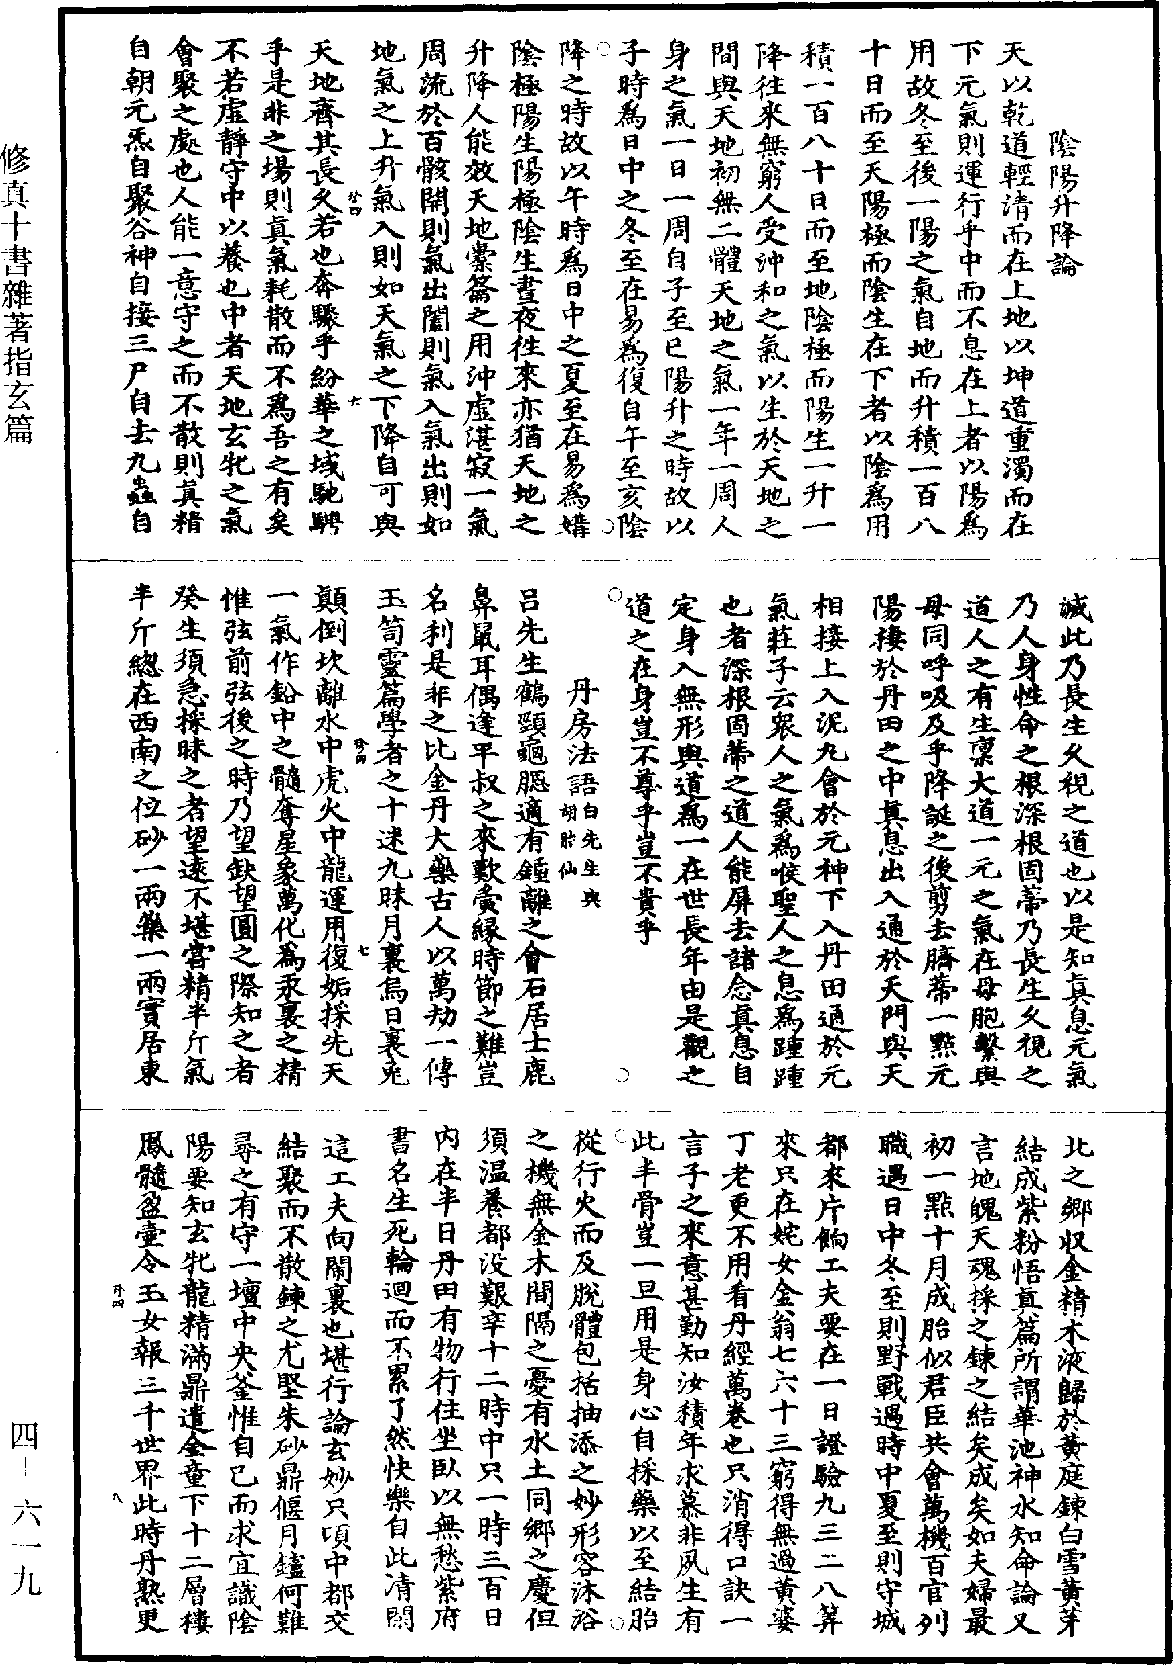 陰陽升降論
天以乾道輕清而在上地以坤道重濁而在
下元氣則運行乎中而不息在上者以陽爲
用故冬至後一陽之氣自地而升積一百八
十日而至天陽極而陰生在下者以陰爲用
積一百八十日而至地陰極而陽生一升一
降往來無窮人受沖和之氣以生於天地之
間與天地初無二體天地之氣一年一周人
身之氣一日一周自子至巳陽升之時故以
子時爲日中之冬至在易爲復自午至亥陰
降之時故以午時爲日中之夏至在易爲媾
陰極陽生陽極陰生晝夜徃來亦猶天地之
升降人能效天地橐籥之用沖虛湛寂一氣
周流於百骸開則氣出闔則氣入氣出則如
地氣之上升氣入則如天氣之下降自可與
天地齊其長久若也奔驟乎紛華之域馳騁
乎是非之場則真氣耗散而不爲吾之有矣
不若虛靜守中以養也中者天地玄牝之氣
會聚之處也人能一意守之而不散則真精
自朝元炁自聚谷神自接三尸自去九蟲自
滅此乃長生久視之道也以是知真息元氣
乃人身性命之根深根固蒂乃長生久視之
道人之有生禀大道一元之氣在母胞繫與
母同呼吸及乎降誕之後剪去臍蒂一點元
陽棲於丹田之中真息出入通於天門與天
相接上入泥丸會於元神下入丹田通於元
氣莊子云衆人之氣爲喉聖人之息爲踵踵
也者深根固蒂之道人能屏去諸念真息自
定身入無形與道爲一在世長年由是觀之
道之在身豈不尊乎豈不貴乎
丹房法語白先生與胡胎仙
呂先生鶴頸龜腮適有鍾離之會石居士鹿
鼻鼠耳偶逢平叔之來歎夤緣時節之難豈
名利是非之比金丹大藥古人以萬劫一傳
玉笥靈篇學者之十迷九昧月裏烏日裏兎
顛倒坎離水中虎火中龍運用復姤採先天
一氣作鉛中之髓奪星象萬化爲汞裏之精
惟弦前弦後之時乃望缺望圓之際知之者
癸生須急採昧之者望遠不堪嘗精半斤氣
半斤總在西南之位砂一兩藥一兩實居東
北之鄉收金精木液歸於黃庭鍊白雪黃芽
結成紫粉悟真篇所謂華池神水知命論又
言地魄天魂採之鍊之結矣成矣如夫婦最
初一點十月成胎似君臣共會萬機百官列
職遇日中冬至則野戰遇時中夏至則守城
都來片餉工夫要在一日證驗九三二八筭
來只在姹女金翁七六十三窮得無過黃婆
丁老更不用看丹經萬卷也只消得口訣一
言子之來意甚勤知汝積年求慕非夙生有
此半骨豈一旦用是身心自採藥以至結胎
從行火而及脫體包括抽添之妙形容沐浴
之機無金木間隔之憂有水土同鄉之慶但
須溫養都没艱辛十二時中只一時三百日
內在半日丹田有物行住坐臥以無愁紫府
書名生死輪迴而不累了然快樂自此清閑
這工夫向鬧裏也堪行論玄妙只頃中都交
結聚而不散鍊之尤堅朱砂鼎偃月鑪何難
尋之有守一壇中央釜惟自己而求宜識陰
陽要知玄牝龍精滿鼎遣金童下十二層樓
鳳髓盈壷令玉女報三千世界此時丹熟更
珍四
六
珍四
七
珍四
八
修真十書雜著指玄篇
四－六一九